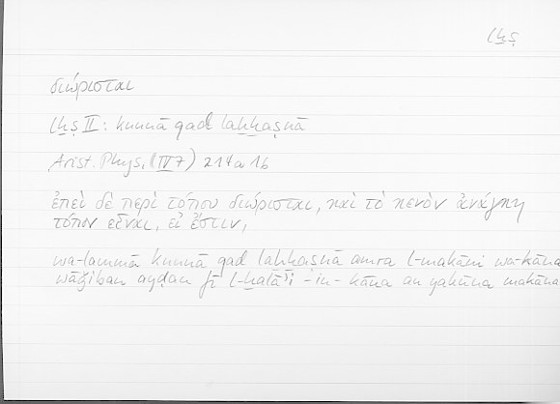 lḫṣ
διώρισται
lḫṣ II: kunnā qad laḫḫaṣnā
Arist. Phys. (IV 7) 214a16
ἐπεὶ δὲ περὶ τόπου διώρισται, καὶ τὸ κενὸν ἀνάγκη
τόπον εἶναι, εἰ ἔστιν,
wa-lammā kunnā qad laḫḫaṣnā amra l-makāni wa-kāna
wāǧiban ayḍan fī l-ḫalāʾi -in- kāna an yakūna makāna